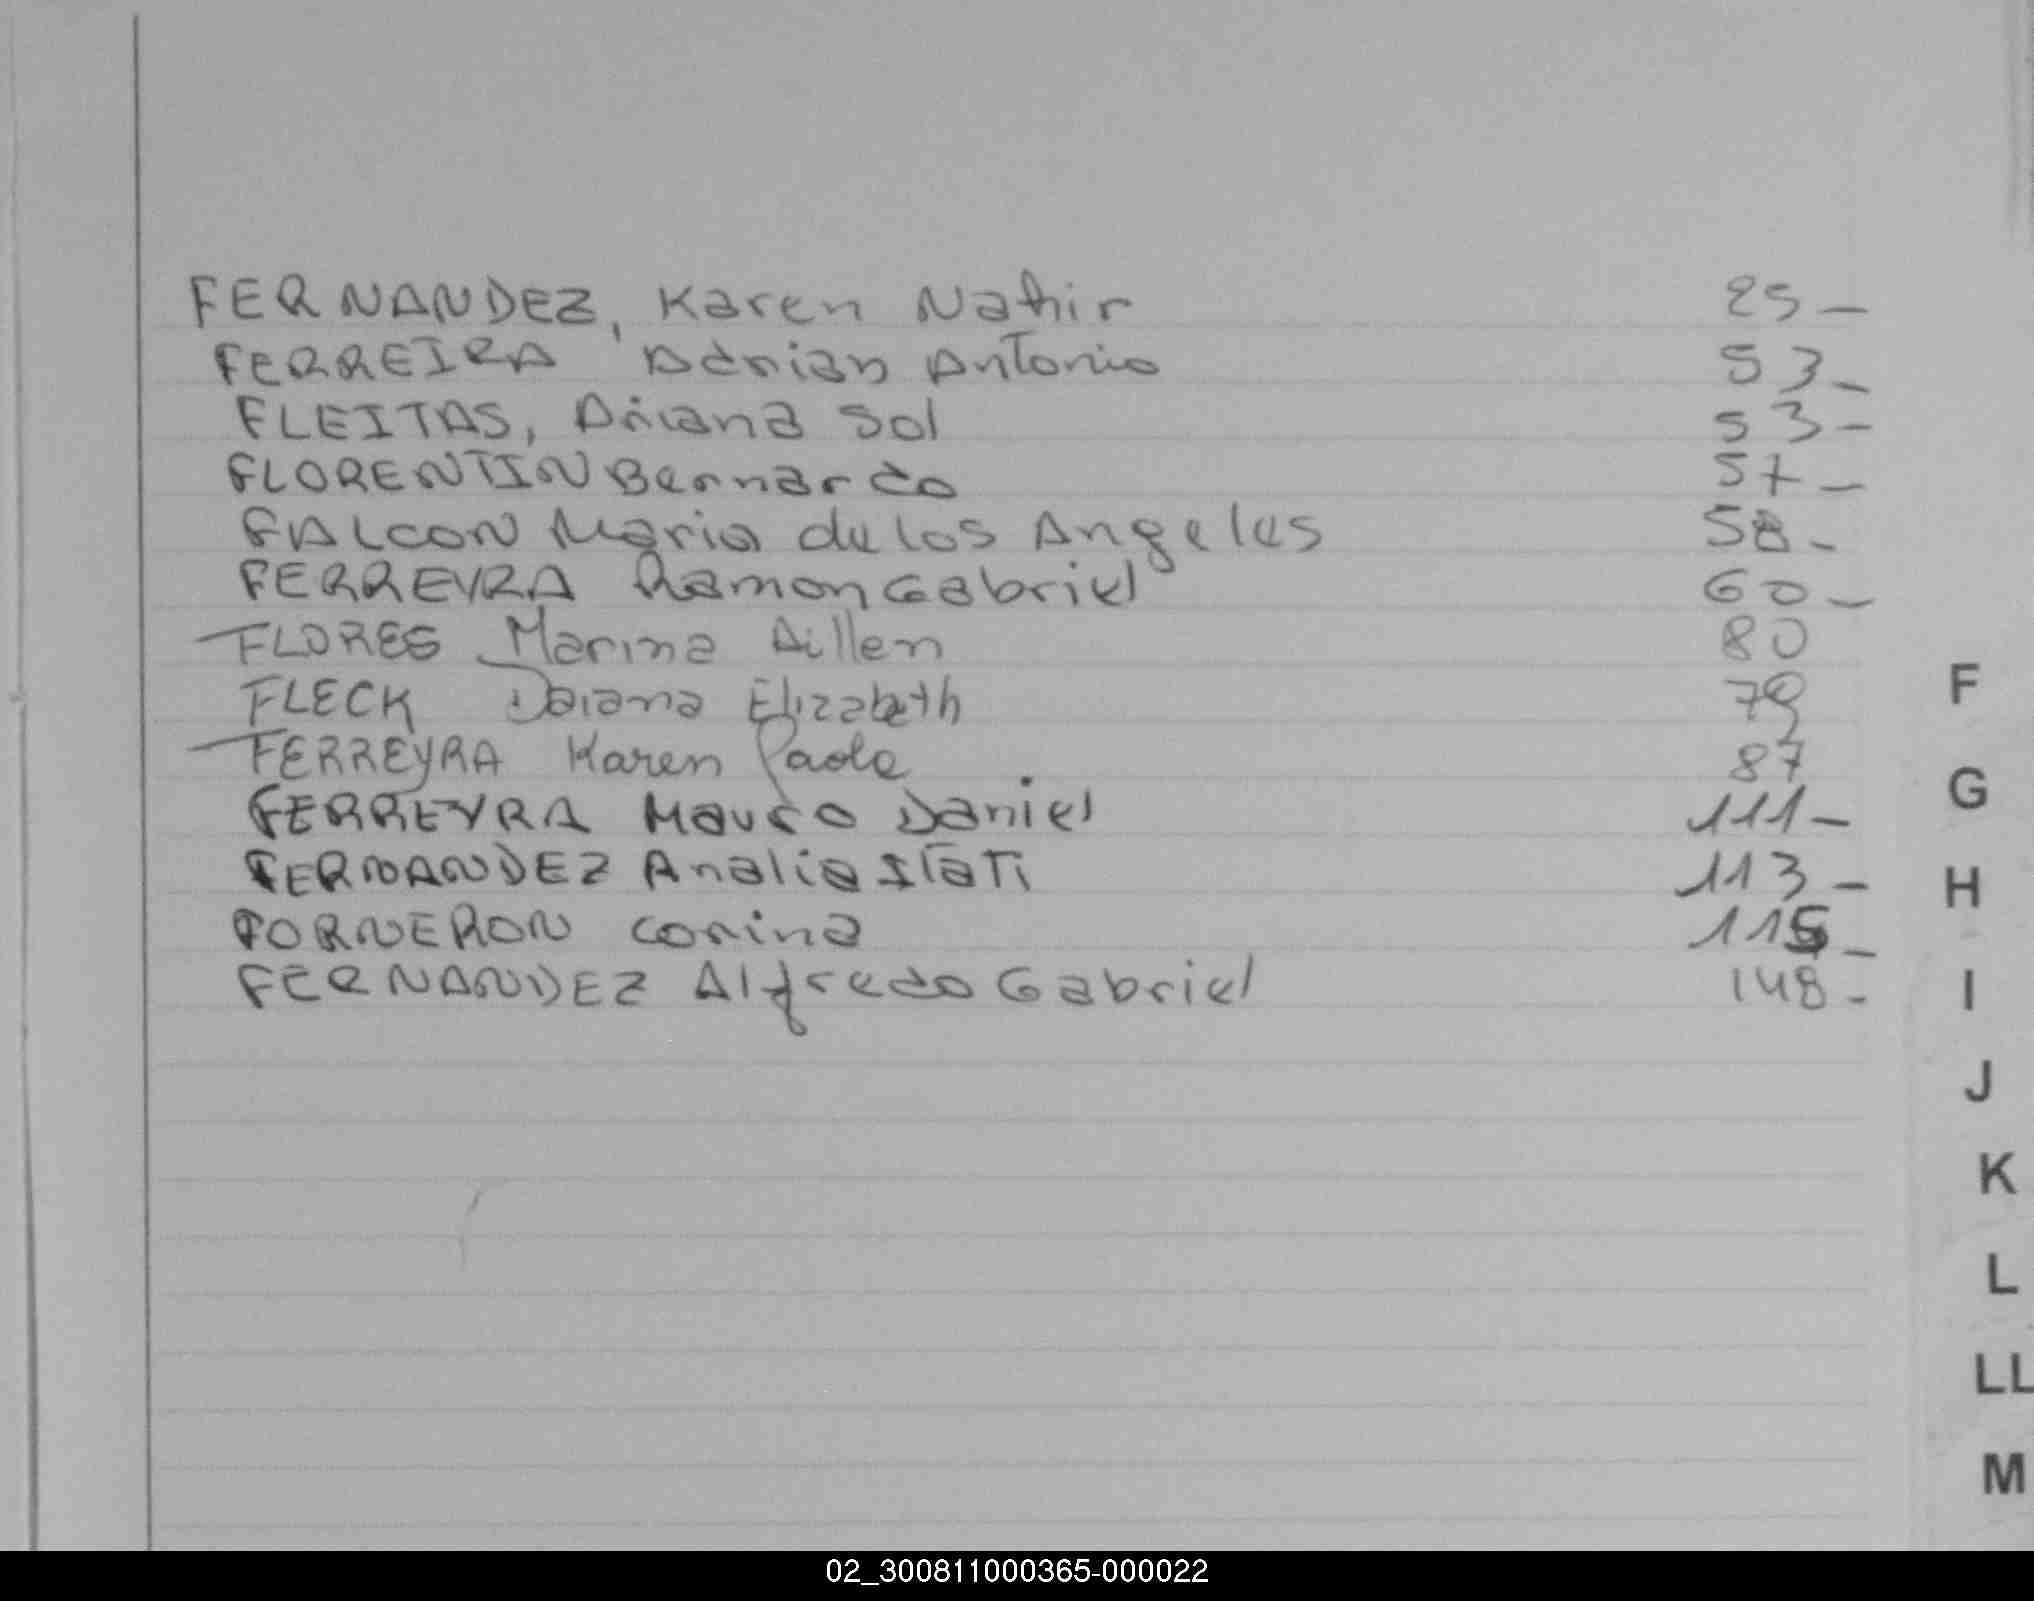 FERNANDEZ, Karen Nahir 25-
FERREIRA Adrian Antonio 53-
FLEITAS, Ariana Sol 53-
FLORENTIN Bernardo 57-
FALCON Maria de los Angeles 58-
FERREYRA Ramon Gabriel 60-
FLORES Marina Aillen 80
FLECK Daiana Elizabeth 79
FERREYRA Karen Paola 87
FERREYRA Mauro Daniel 111-
FERNANDEZ Analia Itati 113-
FORNERON Corina 115-
FERNANDEZ Alfredo Gabriel 148-
F
G
H
I
J
K
L
LL
M
02_300811000365-000022